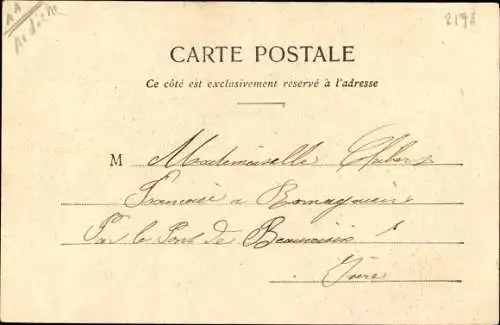 AA
Ardèche
2198
CARTE POSTALE
Ce côté est exclusivement réservé à l'adresse
M Mademoiselle
Françoise a Romagnieu
Par le Pont de Beauvoisin
Isère